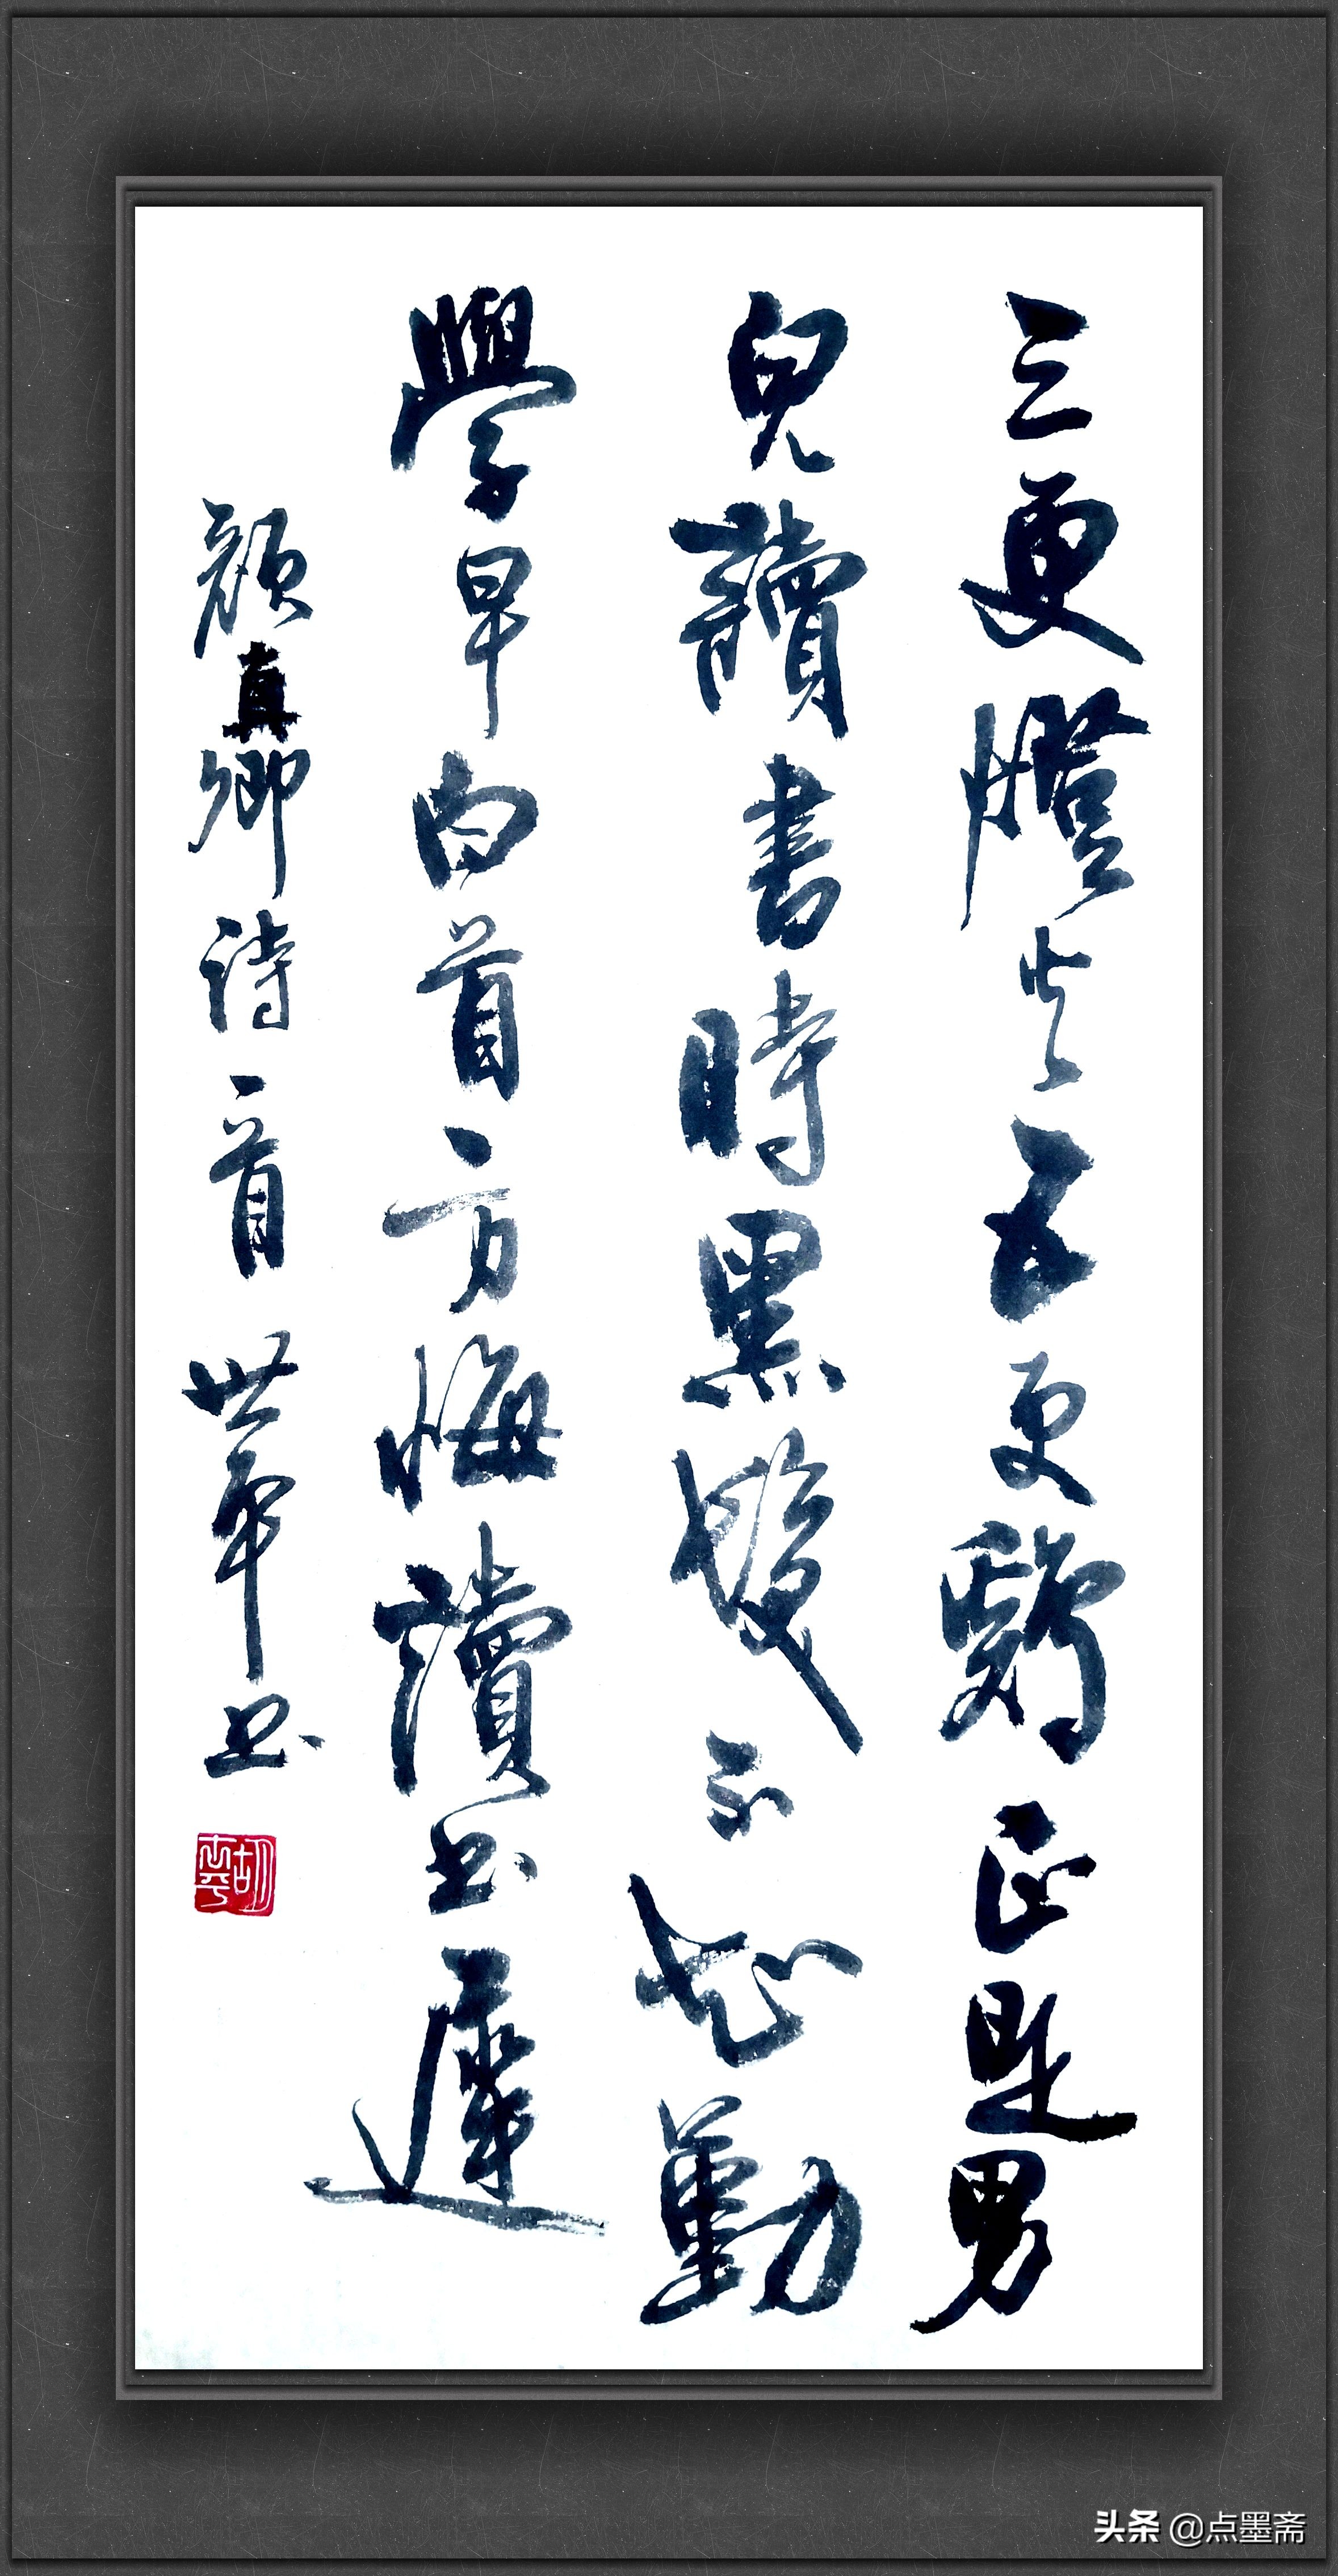 三更燈火五更鷄正是男
兒讀書時黑髮不知勤
學早白首方悔讀书遲
顏真卿詩一首 世平书
胡世平
头条 @点墨斋